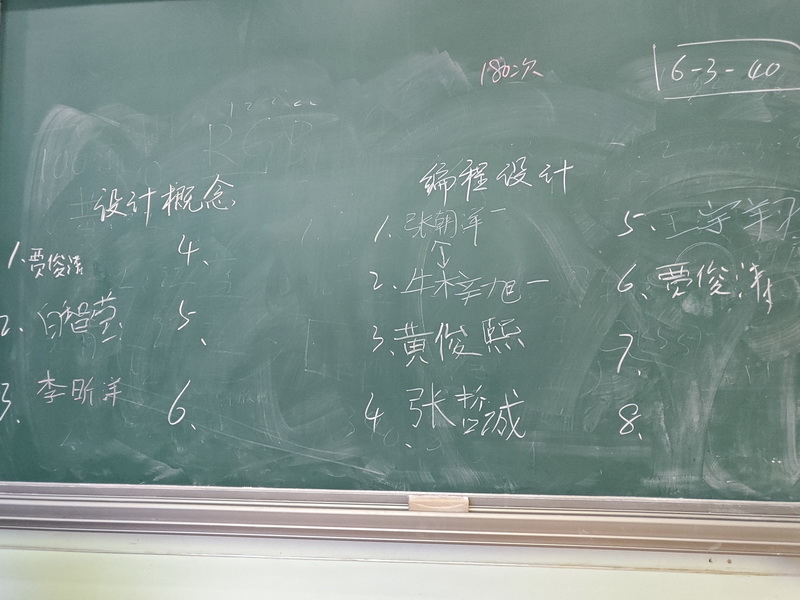 180次
16-3-40
设计概念
1.贾俊涛
2.白智莹
3.李昕洋
4、
5、
6、
编程设计
1.张朝洋一
2.牛梓旭一
3.黄俊熙
4.张哲诚
5、王宇
6、贾俊涛
7、
8、